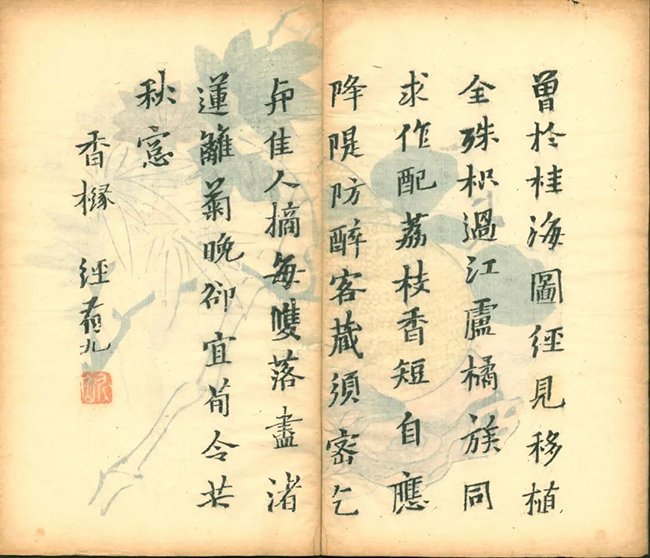 曾於桂海圖經見移植
全殊枳過江盧橘族同
求作配荔枝香短自應
降隄防醉客蔵須密乞
與佳人摘每雙落盡渚
蓮籬菊晚卻宜荀令共
秋窓
香櫞 經九